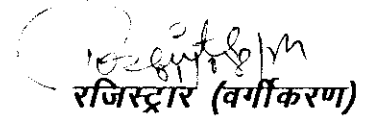 रजिस्ट्रार (वर्गीकरण)